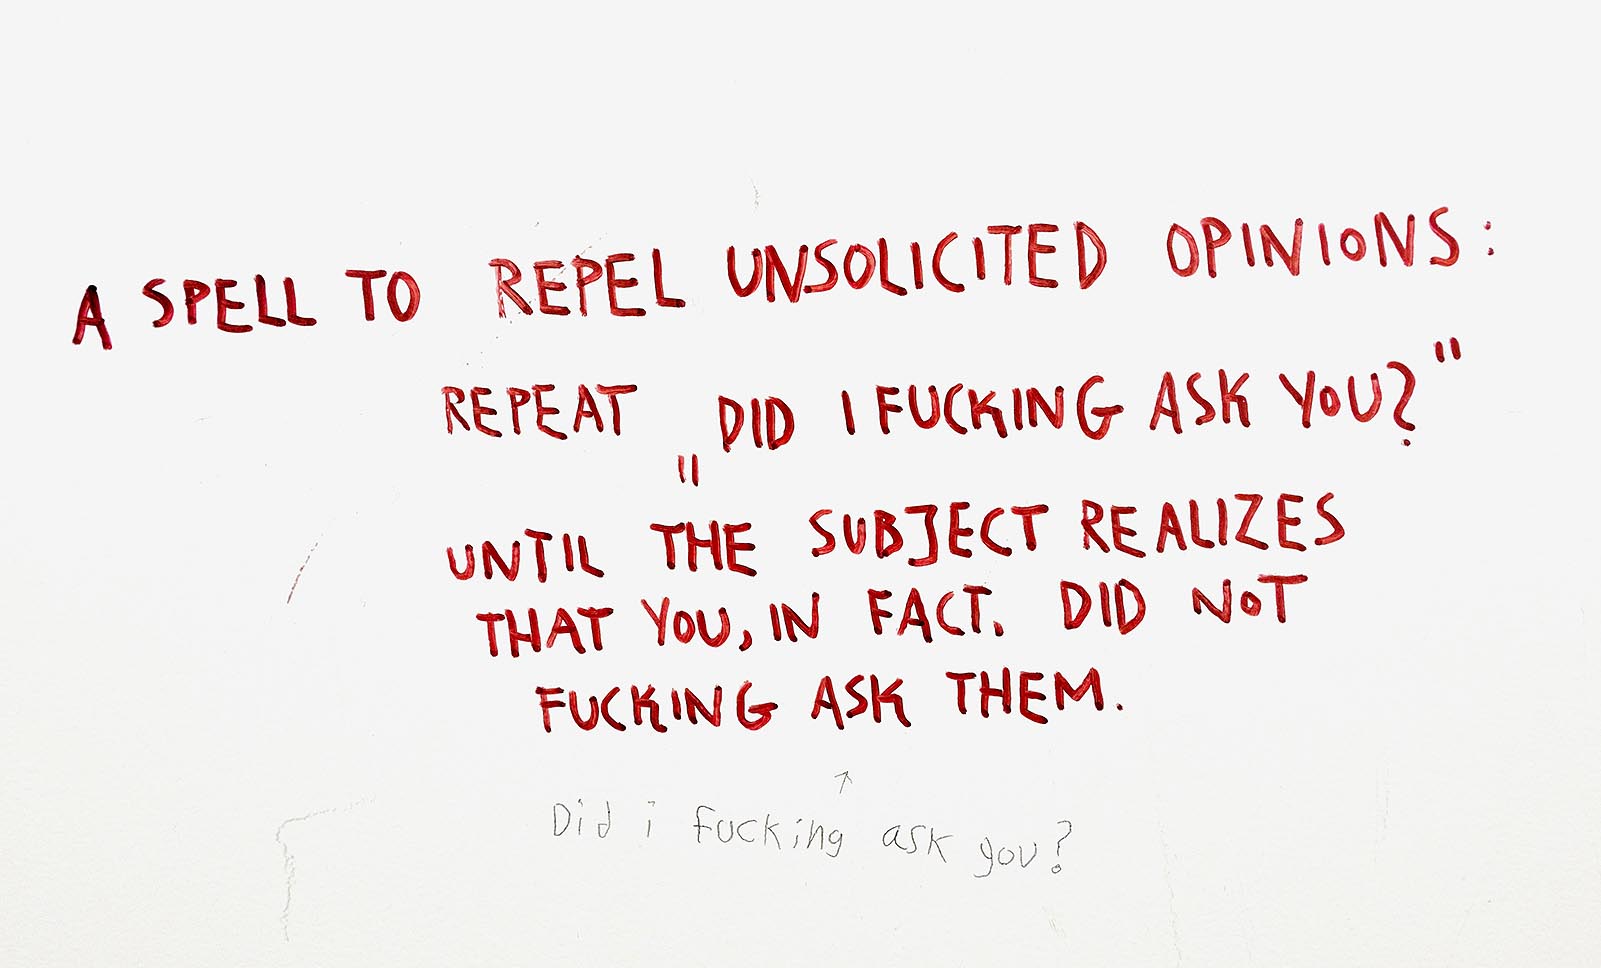 A SPELL TO REPEL UNSOLICITED OPINIONS:
REPEAT "DID I FUCKING ASK YOU?"
UNTIL THE SUBJECT REALIZES
THAT YOU, IN FACT, DID NOT
FUCKING ASK THEM.
↑
Did i fucking ask you?